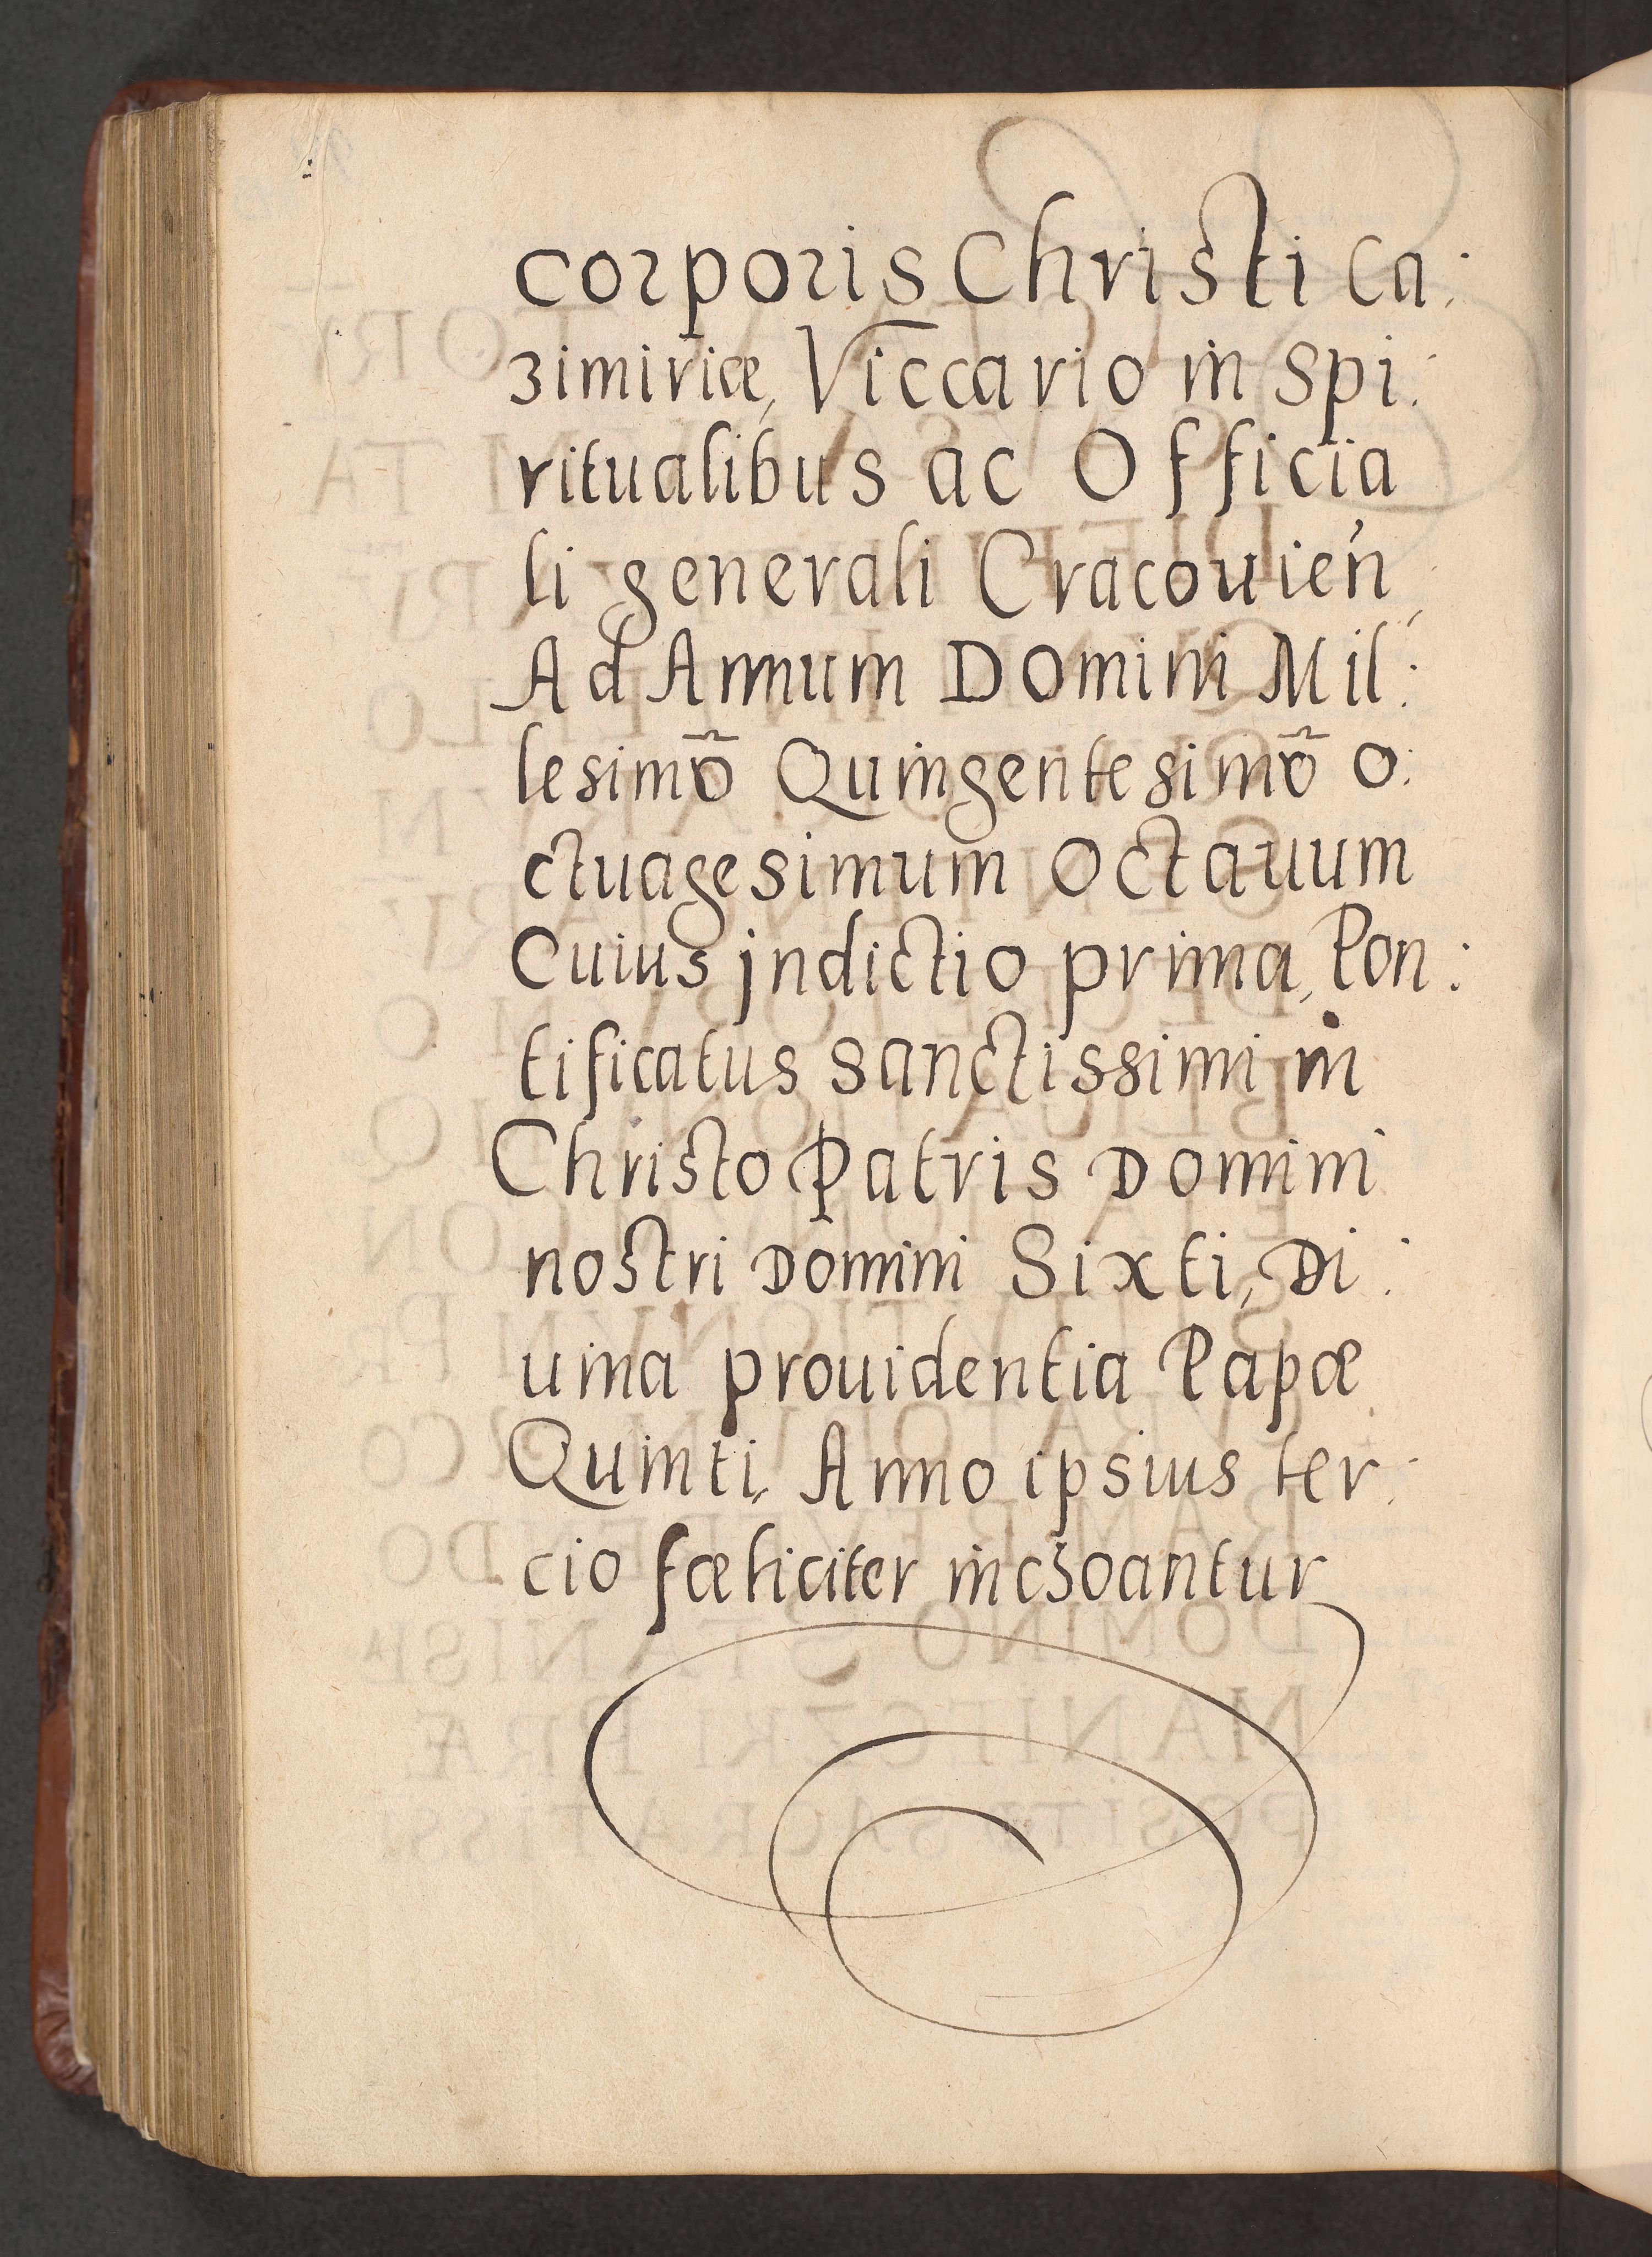 corporis Christi Ca:
zimiriæ, Viccario in Spi:
ritualibus ac Officia
li generali Cracouień,
Ad Annum Domini Mil:
lesimõ Quingentesimõ o:
ctuagesimum Octauum
Cuius jndictio prima, Pon:
tificatus sanctissimi in
Christo Patris Domini
nostri Domini Sixti, Di:
uina prouidentia Papæ
Quinti, Anno ipsius ter:
cio fœliciter inchoantur